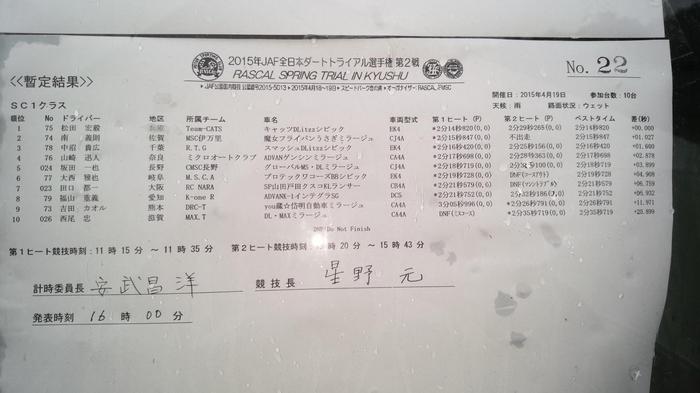 2015年JAF全日本ダートトライアル選手権 第2戦
RASCAL SPRING TRIAL IN KYUSHU
No. 22
<<暫定結果>>
開催日:2015年4月19日 参加台数:10台
天候:雨 路面状況:ウェット
SC1クラス
順位 No ドライバー 地区 所属チーム 車名 車両型式 第1ヒート(P) 第2ヒート(P) ベストタイム 差(秒)
1 75 松田 宏毅 Team-CATS キャッツDLitzzシビック EK4 *2分14秒820(0,0) 2分29秒265(0,0) 2分14秒820 +00.000
2 74 南 義則 佐賀 MSC伊万里 魔女フライパンうさぎミラージュ CJ4A *2分15秒847(0,0) 不出走 2分15秒847 +01.027
3 78 中沼 貴広 千葉 R.T.G スマッシュDLitzzシビック EK4 2分25秒156(0,0) +01.600
4 76 山崎 迅人 奈良 ミクロオートクラブ ADVANゲンシンミラージュ CJ4A *2分17秒698(0,0) 2分28秒963(0,0) 2分17秒698 +02.878
5 024 坂田 一也 長野 CMSC長野 グローバルMS・DLミラージュ CJ4A
6 77 大西 雅也 岐阜 M.S.C.A プロテックワコーズBBシビック EK4 DNF(コースアウト) +04.908
7 023 田口 都一 大阪 RC NARA SP山田戸田クスコKLランサー CB4A *2分21秒579(0,0) DNF(マシントラブル) +06.759
8 79 福山 重義 愛知 K-one R ADVANX-1インテグラSG DC5 *2分21秒752(0,0) 2分21秒752 +06.932
9 73 吉田 カオル 熊本 DRC-T you蔵☆岱明自動車ミラージュ CA4A 3分05秒996(0,0) *2分26秒791(0,0) 2分26秒791 +11.971
10 026 西尾 忠 滋賀 MAX.T DL・MAXミラージュ CA4A DNF(ミスコース) *2分35秒719(0,0) 2分35秒719 +20.899
DNF:Do Not Finish
第1ヒート競技時刻:11時15分~11時35分 第2ヒート競技時刻 時20分~15時43分
計時委員長 安武昌洋 競技長 星野 元
発表時刻 16時00分